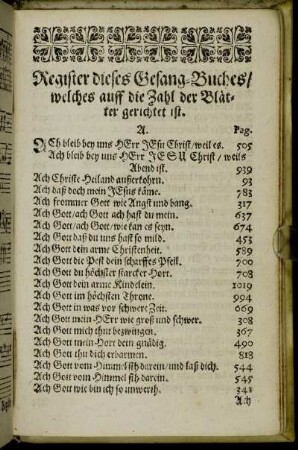 Register dieses Gesang-Buches/
welches auff die Zahl der Blät-
ter gerichtet ist.
A. Pag.
ACh bleib bey uns HErr JEsu Christ/ weil es. 505
Ach bleib bey uns HErr JESU Christ / weils
Abend ist. 939
Ach Christe Heiland außerkohrn. 93
Ach daß doch mein JEsus käme. 783
Ach frommer Gott wie Angst und bang. 317
Ach Gott/ach Gott ach hast du mein. 637
Ach Gott/ach Gott/wie kan es seyn. 674
Ach Gott daß du uns hast so mild. 453
Ach Gott dein arme Christenheit. 589
Ach Gott die Pest dein scharffes Pfeil. 700
Ach Gott du höchster starcker Hort. 708
Ach Gott dein arme Kindelein. 1019
Ach Gott im höchsten Throne. 994
Ach Gott in was vor schwere Zeit. 669
Ach Gott mein HErr wie groß und schwer. 308
Ach Gott mich thut bezwingen. 367
Ach Gott mein Hort dein gnädig. 490
Ach Gott thu dich erbarmen. 818
Ach Gott vom Himmel sih darein/ und laß dich. 544
Ach Gott vom Himmel sih darein. 545
Ach Gott wie bin ich so unwerth. 341
Ach